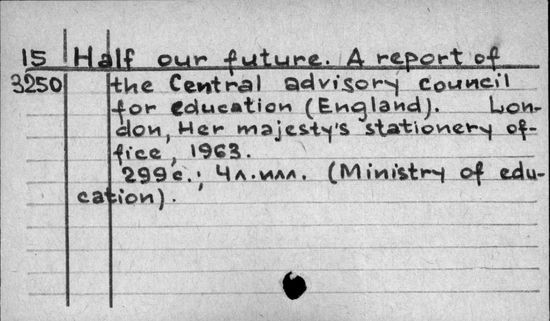 15 Half our future. A report of
3250 the Central advisory council
for education (England). Lon-
don, Her majesty's stationery of-
fice, 1963.
299 с.; 4 л. илл. (Ministry of edu-
cation).